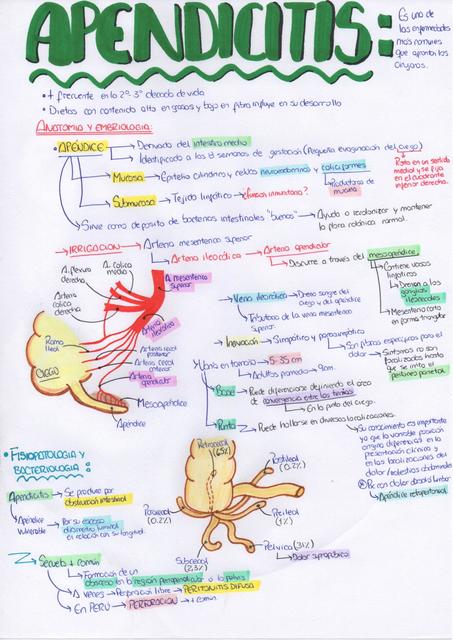 APENDICITIS:
Es una de
las enfermedades
más comunes
que afrontan los
cirujanos.
+ frecuente en la 2º. 3º década de vida
Dietas con contenido alto en grasas y bajo en fibra influye en su desarrollo
ANATOMIA Y EMBRIOLOGIA:
APÉNDICE
Derivado del intestino medio
Identificado a las 8 semanas de gestación (Pequeña evaginación del ciego)
Rota en un sentido
medial y se fija
en el cuadrante
inferior derecho.
Mucosa → Epitelio cilíndrico y células neuroendocrinas y caliciformes
Productoras de
mucina
Submucosa → Tejido linfático → ¿función inmunitaria?
Sirve como depósito de bacterias intestinales "buenas" → Ayuda a recolonizar y mantener
la flora colónica normal.
IRRIGACION → Arteria mesentérica superior
Arteria ileocólica → Arteria apendicular
Discurre a través del mesoapéndice
Contiene vasos
linfáticos
Drenan a los
ganglios
ileocecales
Mesenterio corto en
forma triangular
A. flexura
derecha
A. cólica
media
A. mesentérica
superior
Arteria
cólica
derecha
Arteria
ileocólica
Ramo
ileal
CIEGO
Arteria cecal
posterior
Arteria cecal
anterior
Arteria
apendicular
Mesoapéndice
Apéndice
Vena ileocólica → Drena sangre del
ciego y del apéndice
Tributaria de la vena mesentérica
superior
Inervación → Simpático y parasimpático
Son fibras específicas para el
dolor
Síntomas no son
localizados hasta
que se irrita el
peritoneo parietal
Varía en tamaño → 5-35 cm
Adultos promedio → 9cm
Base → Puede diferenciarse definiendo el área
de convergencia entre las tenias
En la punta del ciego.
Punta → Puede hallarse en diversas localizaciones.
Su conocimiento es importante
ya que la variable posición
origina diferencias en la
presentación clínica y
en las localizaciones del
dolor/molestias abdominales
Px con dolor dorsal o lumbar
Apéndice retroperitoneal
FISIOPATOLOGIA Y
BACTERIOLOGIA:
Apendicitis → Se produce por
obstrucción intestinal
Apéndice
vulnerable → Por su escaso
diámetro luminal
en relación con su longitud.
Retrocecal
(65%)
Postileal
(0.2%)
Paracecal
(0.2%)
Preileal
(1%)
Subcecal
(2.3%)
Pélvica (31%)
Dolor suprapúbico
Secuela + común
Formación de un
absceso en la región periapendicular o la pelvis
A veces → Perforación libre → PERITONITIS DIFUSA
En PERÚ → PERFORACIÓN → + común.